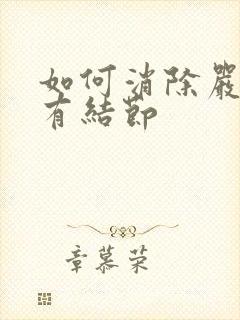 如何消除嚴
有結節
章慕荣